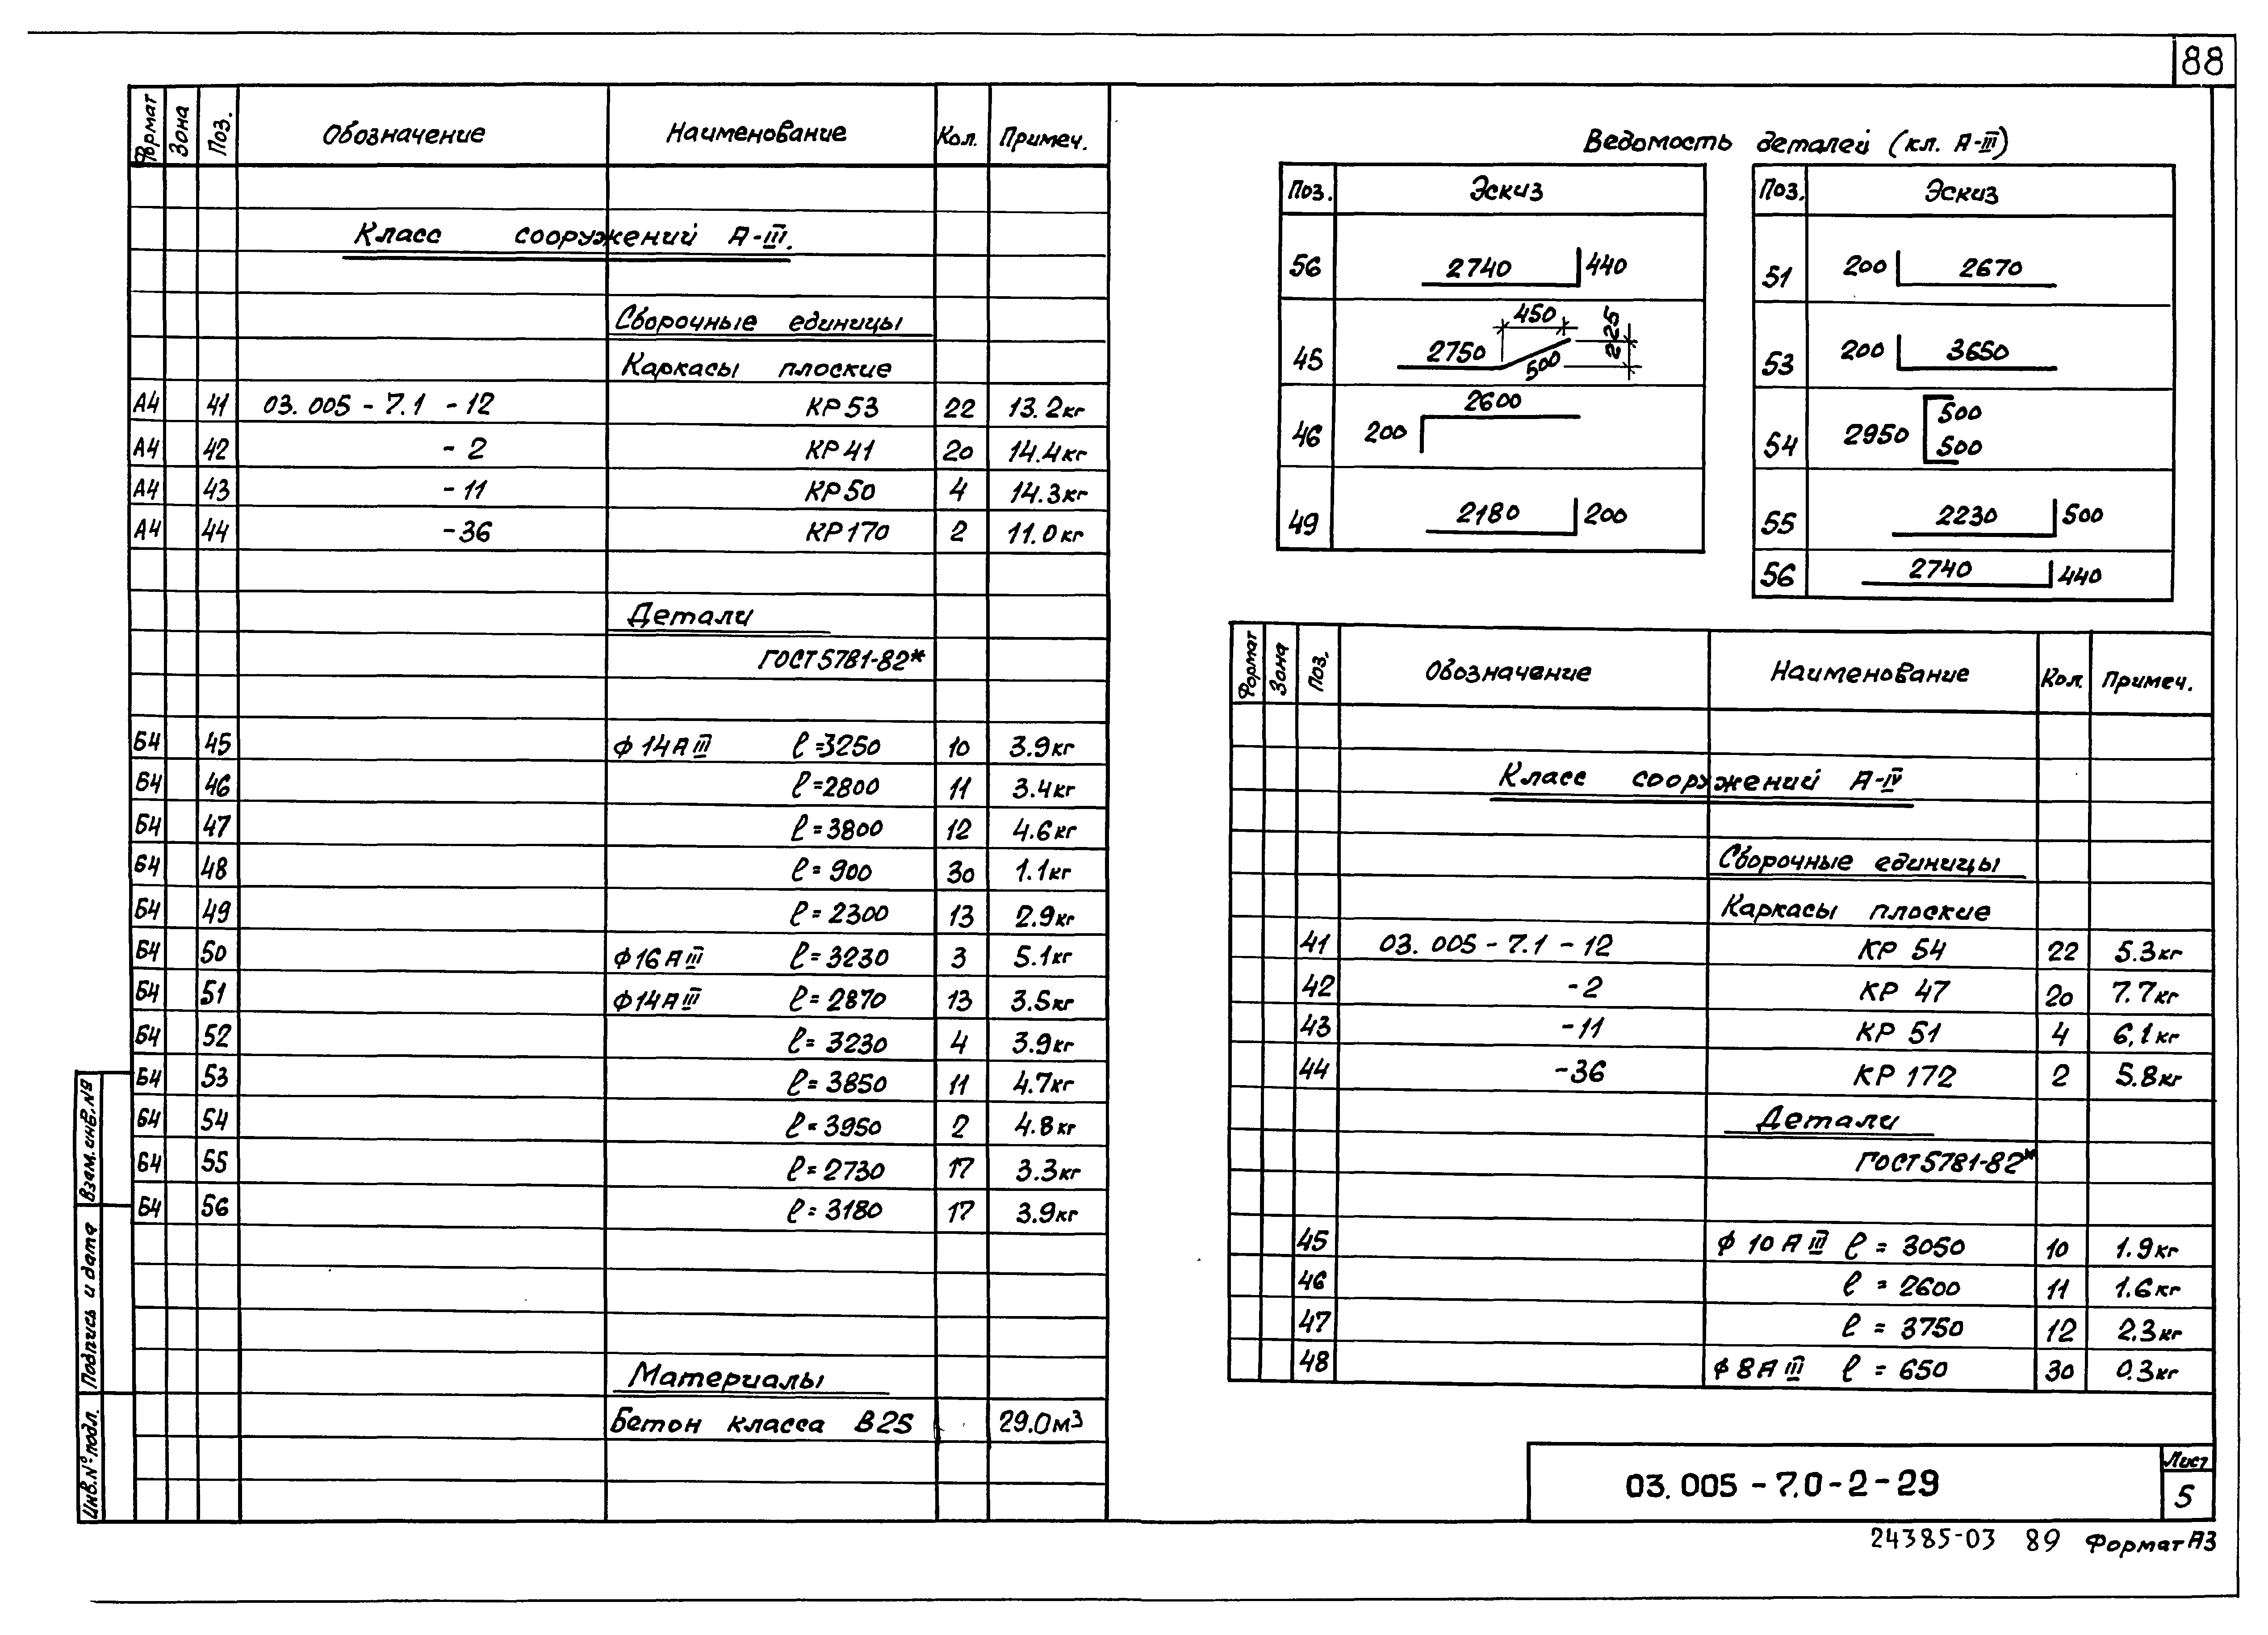 88
Формат Зона Поз. Обозначение Наименование Кол. Примеч.
Класс сооружений А-III.
Сборочные единицы
Каркасы плоские
А4 41 03.005-7.1 -12 КР53 22 13.2кг
А4 42 -2 КР41 20 14.4кг
А4 43 -11 КР50 4 14.3кг
А4 44 -36 КР170 2 11.0кг
Детали
ГОСТ5781-82*
Б4 45 ф14АIII ℓ=3250 10 3.9кг
Б4 46 ℓ=2800 11 3.4кг
Б4 47 ℓ=3800 12 4.6кг
Б4 48 ℓ=900 30 1.1кг
Б4 49 ℓ=2300 13 2.9кг
Б4 50 ф16АIII ℓ=3230 3 5.1кг
Б4 51 ф14АIII ℓ=2870 13 3.5кг
Б4 52 ℓ=3230 4 3.9кг
Б4 53 ℓ=3850 11 4.7кг
Б4 54 ℓ=3950 2 4.8кг
Б4 55 ℓ=2730 17 3.3кг
Б4 56 ℓ=3180 17 3.9кг
Материалы
Бетон класса В25 29.0м³
Взам. инв. №
Подпись и дата
Инв. № подл.
Ведомость деталей (кл. А-III)
Поз. Эскиз
56 2740 440
45 2750 450 500 225
46 200 2600
49 2180 200
Поз. Эскиз
51 200 2670
53 200 3650
54 2950 500 500
55 2230 500
56 2740 440
Формат Зона Поз. Обозначение Наименование Кол. Примеч.
Класс сооружений А-IV
Сборочные единицы
Каркасы плоские
41 03.005-7.1-12 КР 54 22 5.3кг
42 -2 КР 47 20 7.7кг
43 -11 КР 51 4 6,1кг
44 -36 КР 172 2 5.8кг
Детали
ГОСТ5781-82*
45 ф 10 АIII ℓ = 3050 10 1.9кг
46 ℓ = 2600 11 1.6кг
47 ℓ = 3750 12 2.3кг
48 ф8АIII ℓ = 650 30 0.3кг
03.005-7.0-2-29
Лист
5
24385-03 89 Формат А3